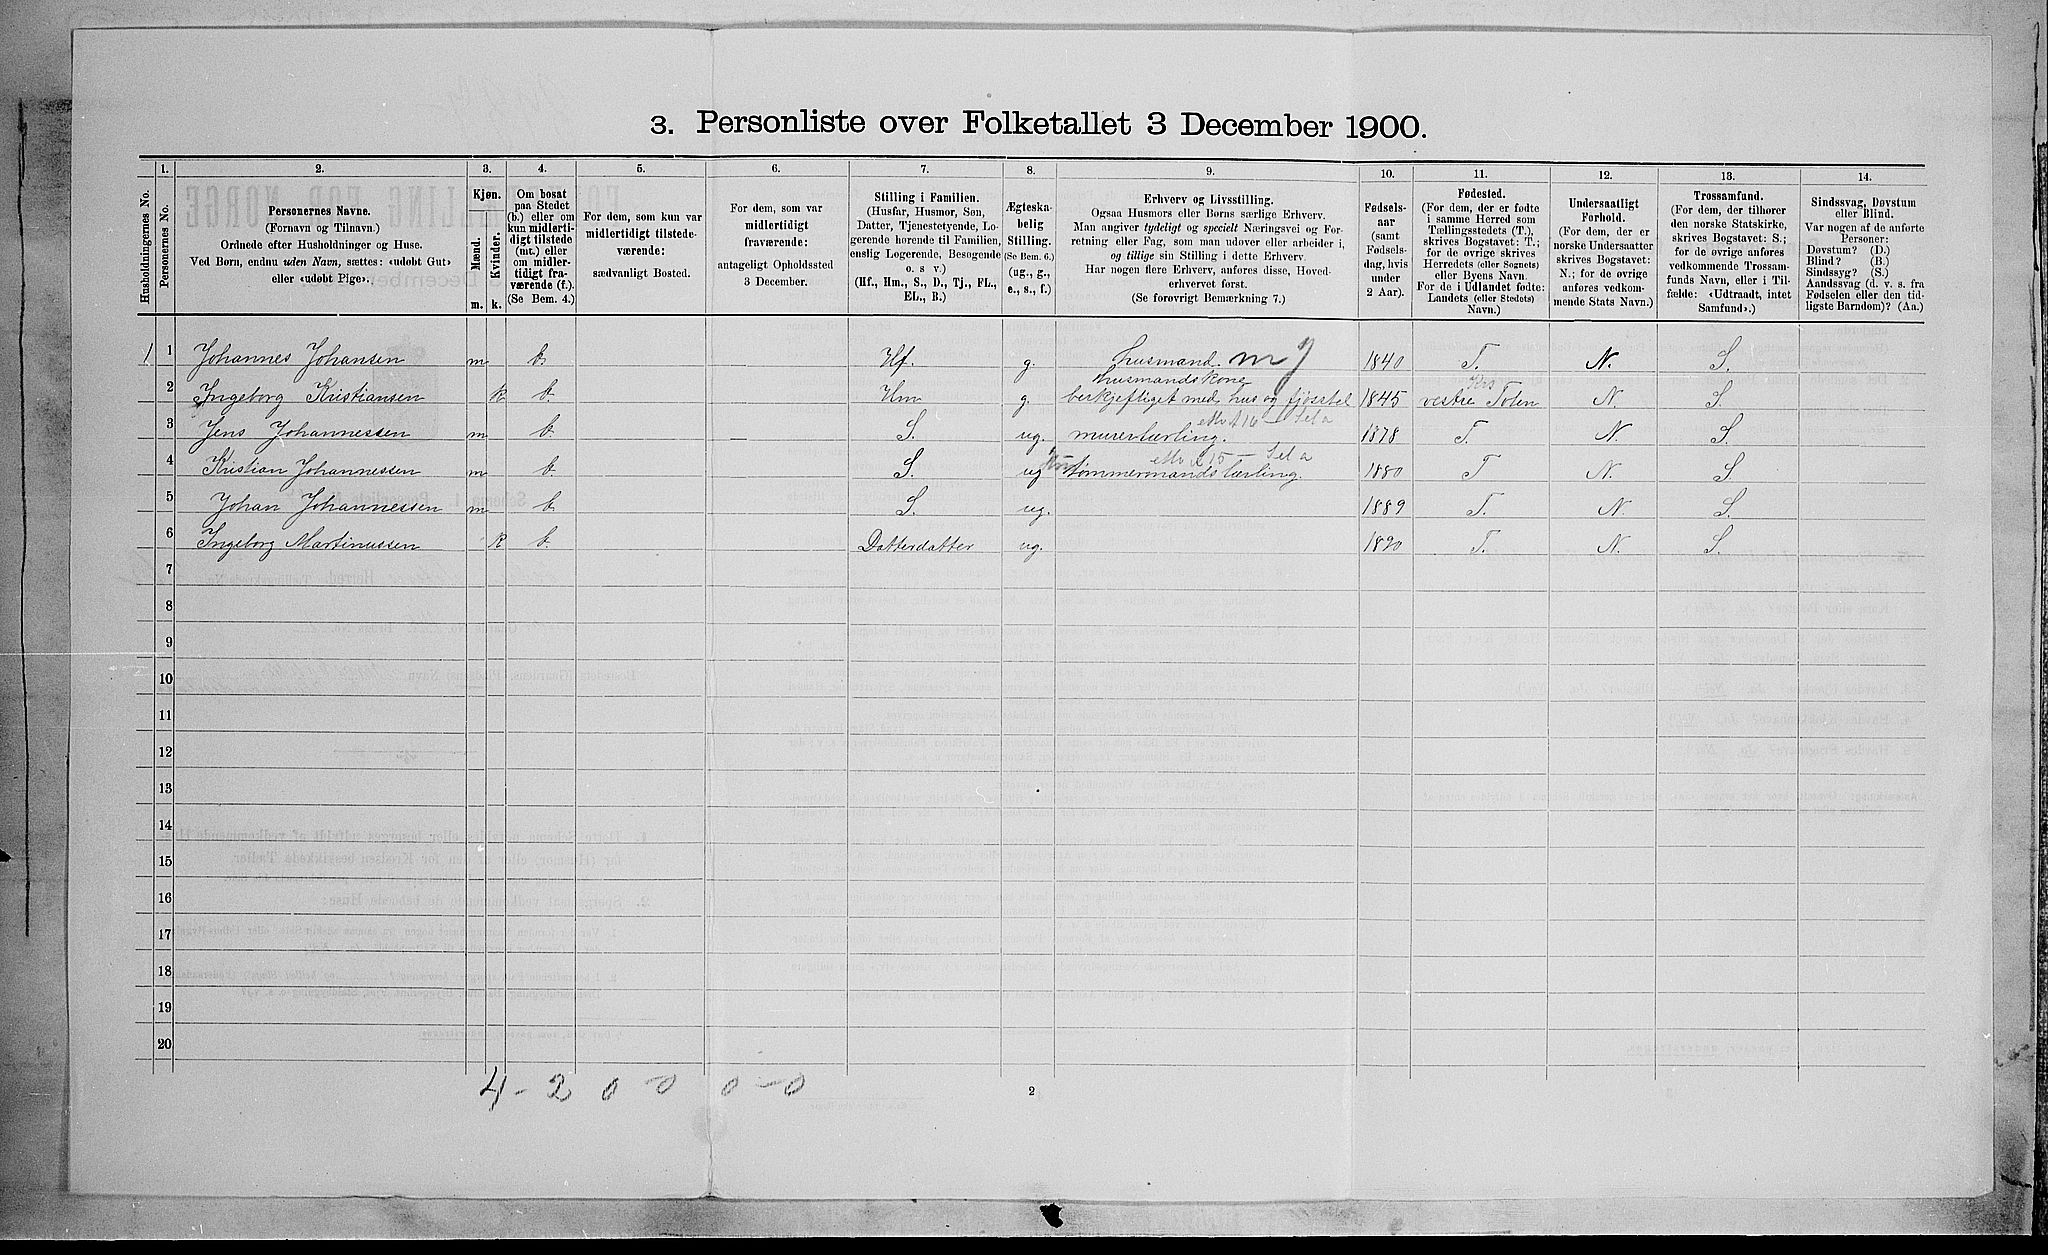 3. Personliste over Folketallet 3 December 1900.
Husholdningernes No.
1.
Personernes No.
2.
Personernes Navne.
(Fornavn og Tilnavn.)
Ordnede efter Husholdninger og Huse.
Ved Børn, endnu uden Navn, sættes: «udøbt Gut»
eller «udøbt Pige».
3.
Kjøn.
Mænd.
Kvinder.
m. k.
4.
Om bosat
paa Stedet
(b.) eller om
kun midlerti-
digt tilstede
(mt.) eller
om midler-
tidigt fra-
værende (f.).
(Se Bem. 4.)
5.
For dem, som kun var
midlertidigt tilstede-
værende:
sædvanligt Bosted.
6.
For dem, som var
midlertidigt
fraværende:
antageligt Opholdssted
3 December.
7.
Stilling i Familien.
(Husfar, Husmor, Søn,
Datter, Tjenestetyende, Lo-
gerende hørende til Familien,
enslig Logerende, Besøgende
o. s. v.)
(Hf., Hm., S., D., Tj., FL.,
EL., B.)
8.
Ægteska-
belig
Stilling.
(Se Bem. 6.)
(ug., g.,
e., s., f.)
9.
Erhverv og Livsstilling.
Ogsaa Husmors eller Børns særlige Erhverv.
Man angiver tydeligt og specielt Næringsvei og For-
retning eller Fag, som man udøver eller arbeider i,
og tillige sin Stilling i dette Erhverv.
Har nogen flere Erhverv, anføres disse, Hoved-
erhvervet først.
(Se forøvrigt Bemærkning 7.)
10.
Fødsels-
aar
(samt
Fødsels-
dag, hvis
under
2 Aar).
11.
Fødested.
(For dem, der er fødte
i samme Herred som
Tællingsstedets (T.),
skrives Bogstavet: T.;
for de øvrige skrives
Herredets (eller Sognets)
eller Byens Navn.
For de i Udlandet fødte:
Landets (eller Stedets)
Navn.)
12.
Undersaatligt
Forhold.
(For dem, der er
norske Undersaatter
skrives Bogstavet:
N.; for de øvrige
anføres vedkom-
mende Stats Navn.)
13.
Trossamfund.
(For dem, der tilhører
den norske Statskirke,
skrives Bogstavet: S.;
for de øvrige anføres
vedkommende Trossam-
funds Navn, eller i Til-
fælde: «Udtraadt, intet
Samfund».)
14.
Sindssvag, Døvstum
eller Blind.
Var nogen af de anførte
Personer:
Døvstum? (D.)
Blind? (B.)
Sindssyg? (S.)
Aandssvag (d. v. s. fra
Fødselen eller den tid-
ligste Barndom)? (Aa.)
1 1 Johannes Johansen m b. Hf. g. husmand. m j 1840 T. N. S.
husmandskone Krs
2 Ingeborg Kristiansen k b. Hm g. beskjeftiget med hus og fjøsstel 1845 vestre Toten N. S.
3 Jens Johannessen m b. S. ug. murerlærling. 1878 T. N. S.
4 Kristian Johannessen m b. S. ug tømmermandslærling. 1880 T N. S.
5 Johan Johannessen m b. S. ug. 1889 T. N. S.
6 Ingeborg Martinussen k b. Datterdatter ug. 1890 T. N. S.
7
8
9
10
11
12
13
14
15
16
17
18
19
20
4 - 2 0 - 0 0 - 0
2